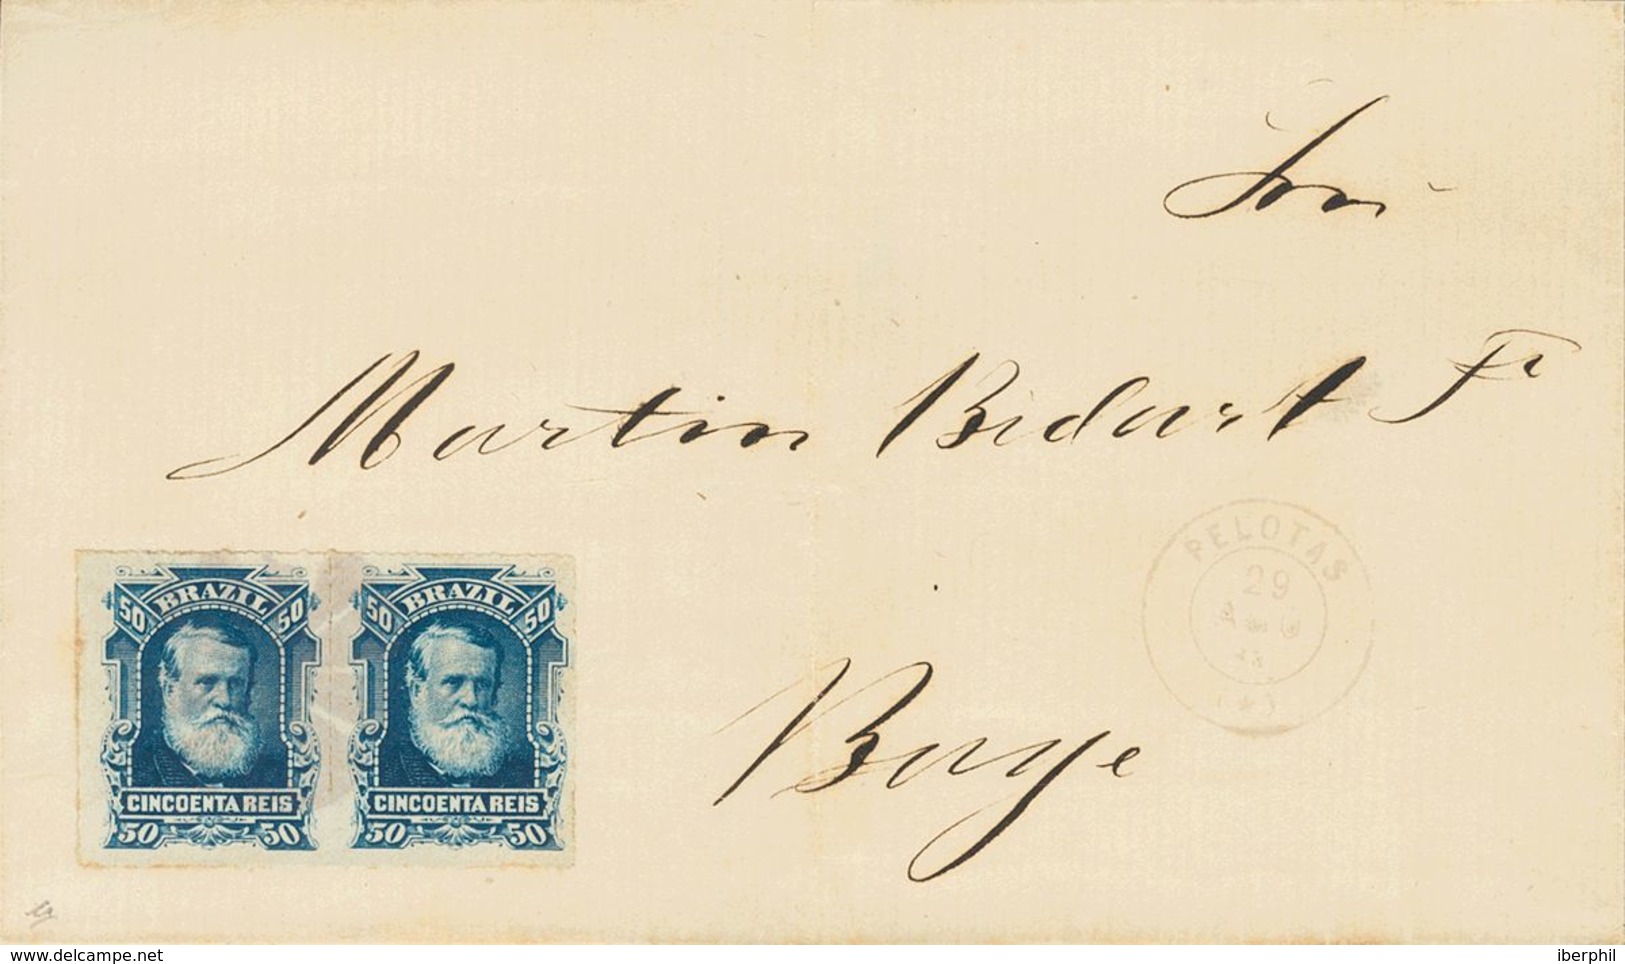 Snr
Martin Bidart Fo
PELOTAS
29
(*)
Baye
50 BRAZIL 50
CINCOENTA REIS
50 50
50 BRAZIL 50
CINCOENTA REIS
50 50
www.delcampe.net
iberphil